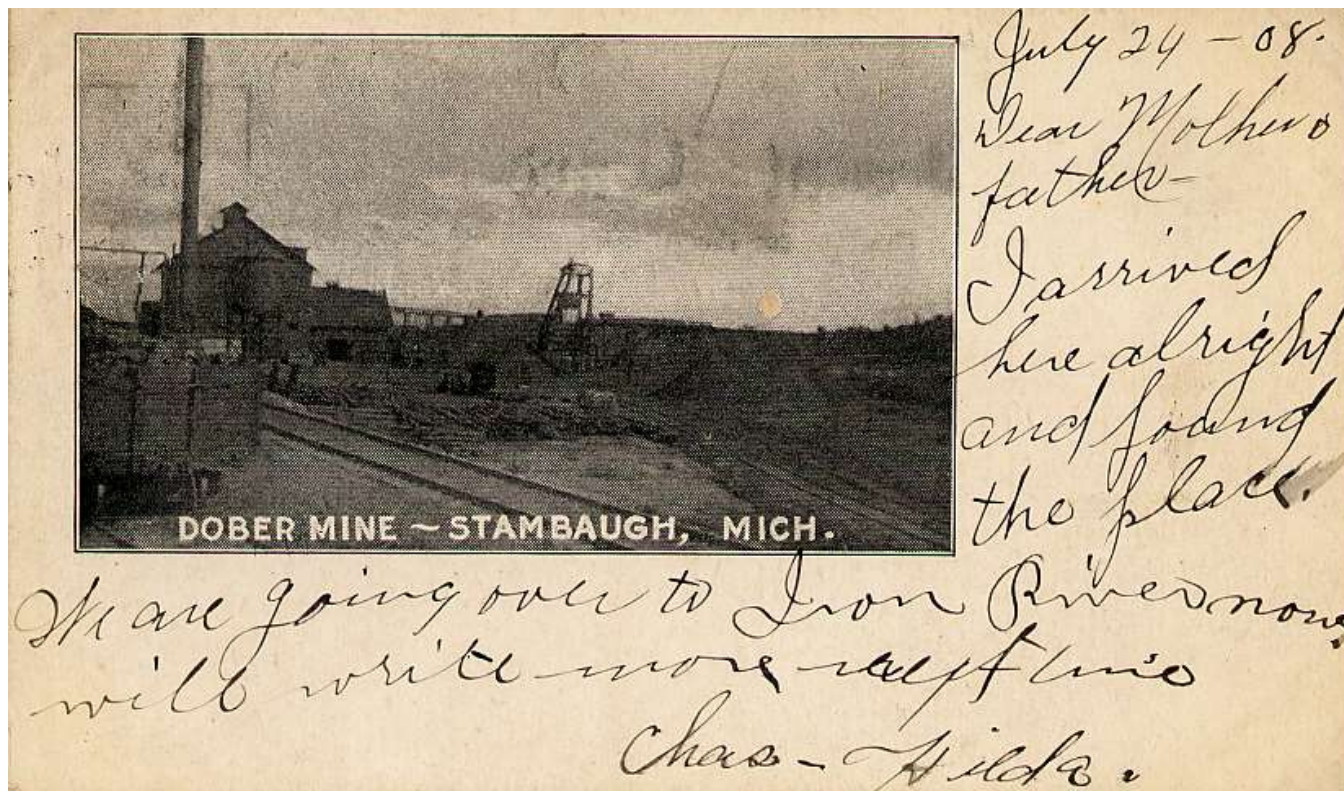 DOBER MINE ~ STAMBAUGH, MICH.
July 24 - 08.
Dear Mother &
father -
I arrived
here alright
and found
the place.
We are going over to Iron River now.
will write more next time
Chas - Hilda.